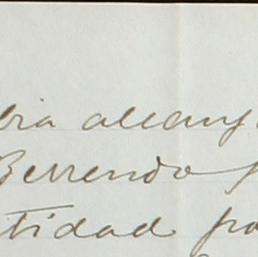 bia alcanz
Berrendo
tidad pa